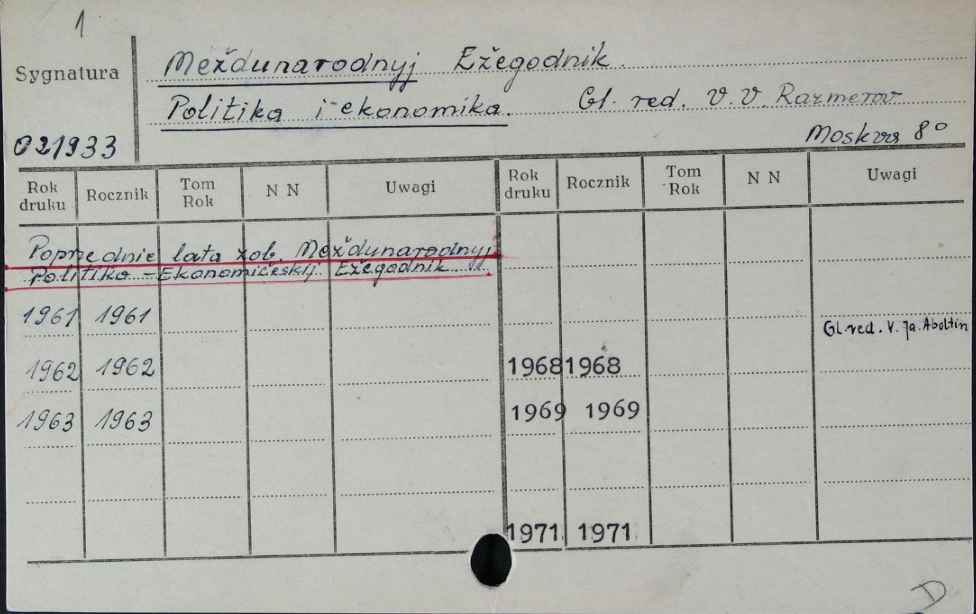 1
Sygnatura
Meždunarodnyj Ežegodnik.
Politika i ekonomika. Gl. red. V. V. Razmerov
021933
Moskva 8°
Rok druku Rocznik Tom Rok N N Uwagi Rok druku Rocznik Tom Rok N N Uwagi
Poprzednie lata zob. Meždunarodnyj
Politiko-Ekonomičeskij Ežegodnik
1961 1961
Gl red. V. Ja. Aboltin
1962 1962 1968 1968
1963 1963 1969 1969
1971 1971
D